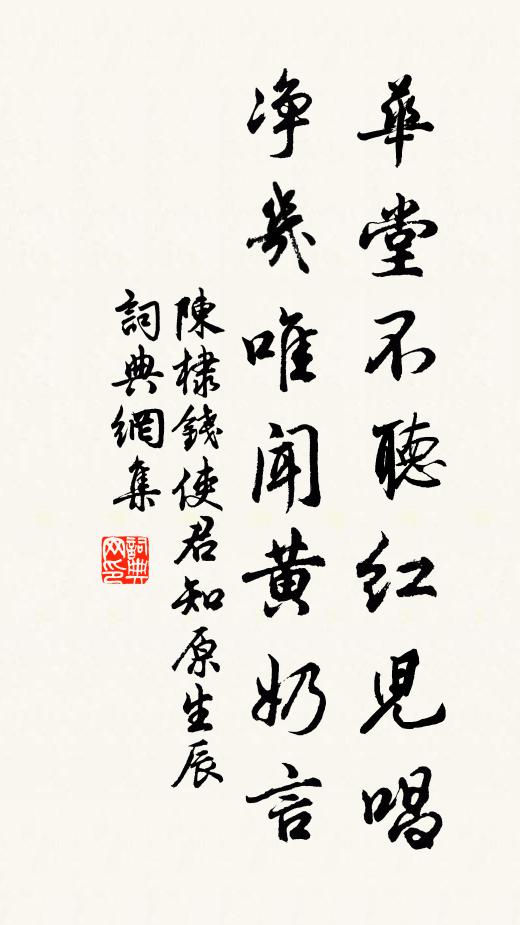 華堂不聽紅児唱
淨幾唯聞黄奶言
陳棣錢使君知原生辰
詞典網集
詞典網印